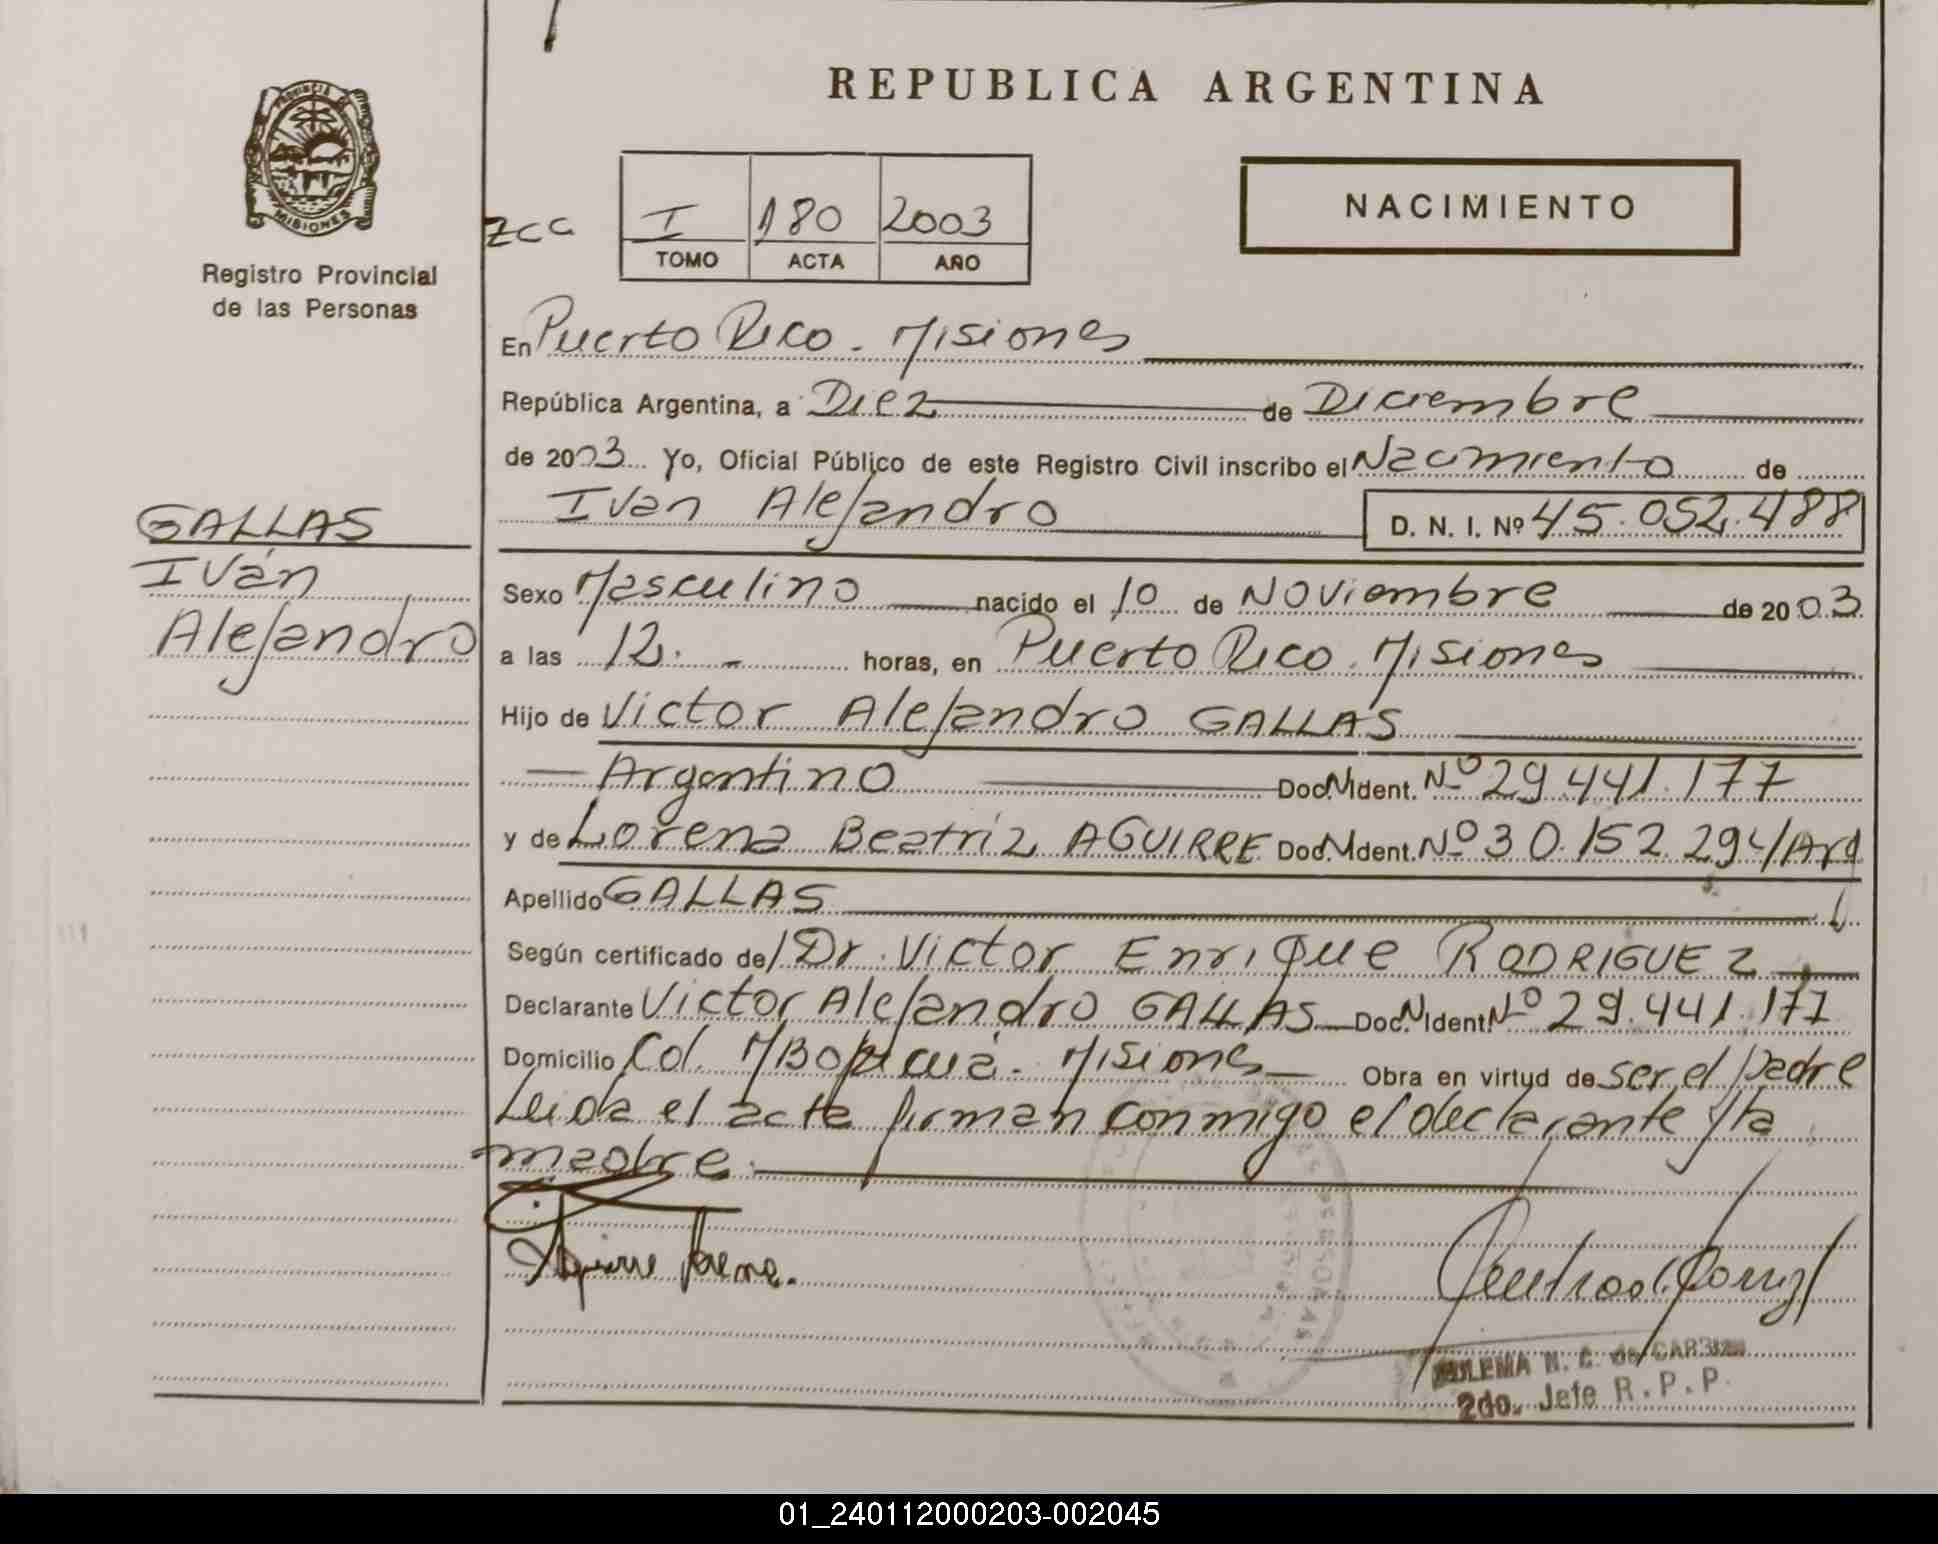 REPUBLICA ARGENTINA
PROVINCIA DE
MISIONES
Registro Provincial
de las Personas
NACIMIENTO
zca
I 180 2003
TOMO ACTA AÑO
En Puerto Rico. Misiones
República Argentina, a Diez de Diciembre
de 2003 Yo, Oficial Público de este Registro Civil inscribo el Nacimiento de
Ivan Alejandro D. N. I. Nº 45.052.488
GALLAS
Iván
Alejandro
Sexo Masculino nacido el 10 de Noviembre de 2003
a las 12.- horas, en Puerto Rico. Misiones
Hijo de Victor Alejandro GALLAS
Argentino Doc.N.Ident. Nº 29.441.177
y de Lorena Beatriz AGUIRRE Doc.N.Ident. Nº 30.152.294/Arg
Apellido GALLAS
Según certificado de/ Dr. Victor Enrique RODRIGUEZ
Declarante Victor Alejandro GALLAS Doc.N.Ident. Nº 29.441.177
Domicilio Col. Mbopicuá. Misiones Obra en virtud de ser el padre
Leida el acta firman conmigo el declarante y la
madre.
Aguirre Lorena.
ZULEMA N. C. de
2do. Jefe R.P.P.
01_240112000203-002045